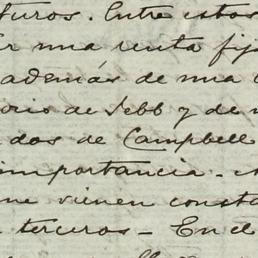 turos. Entre estos
er una renta fija
además de una
orio de Jebb y de
dos de Campbell
importancia.
ne vienen consta
terceros - En el